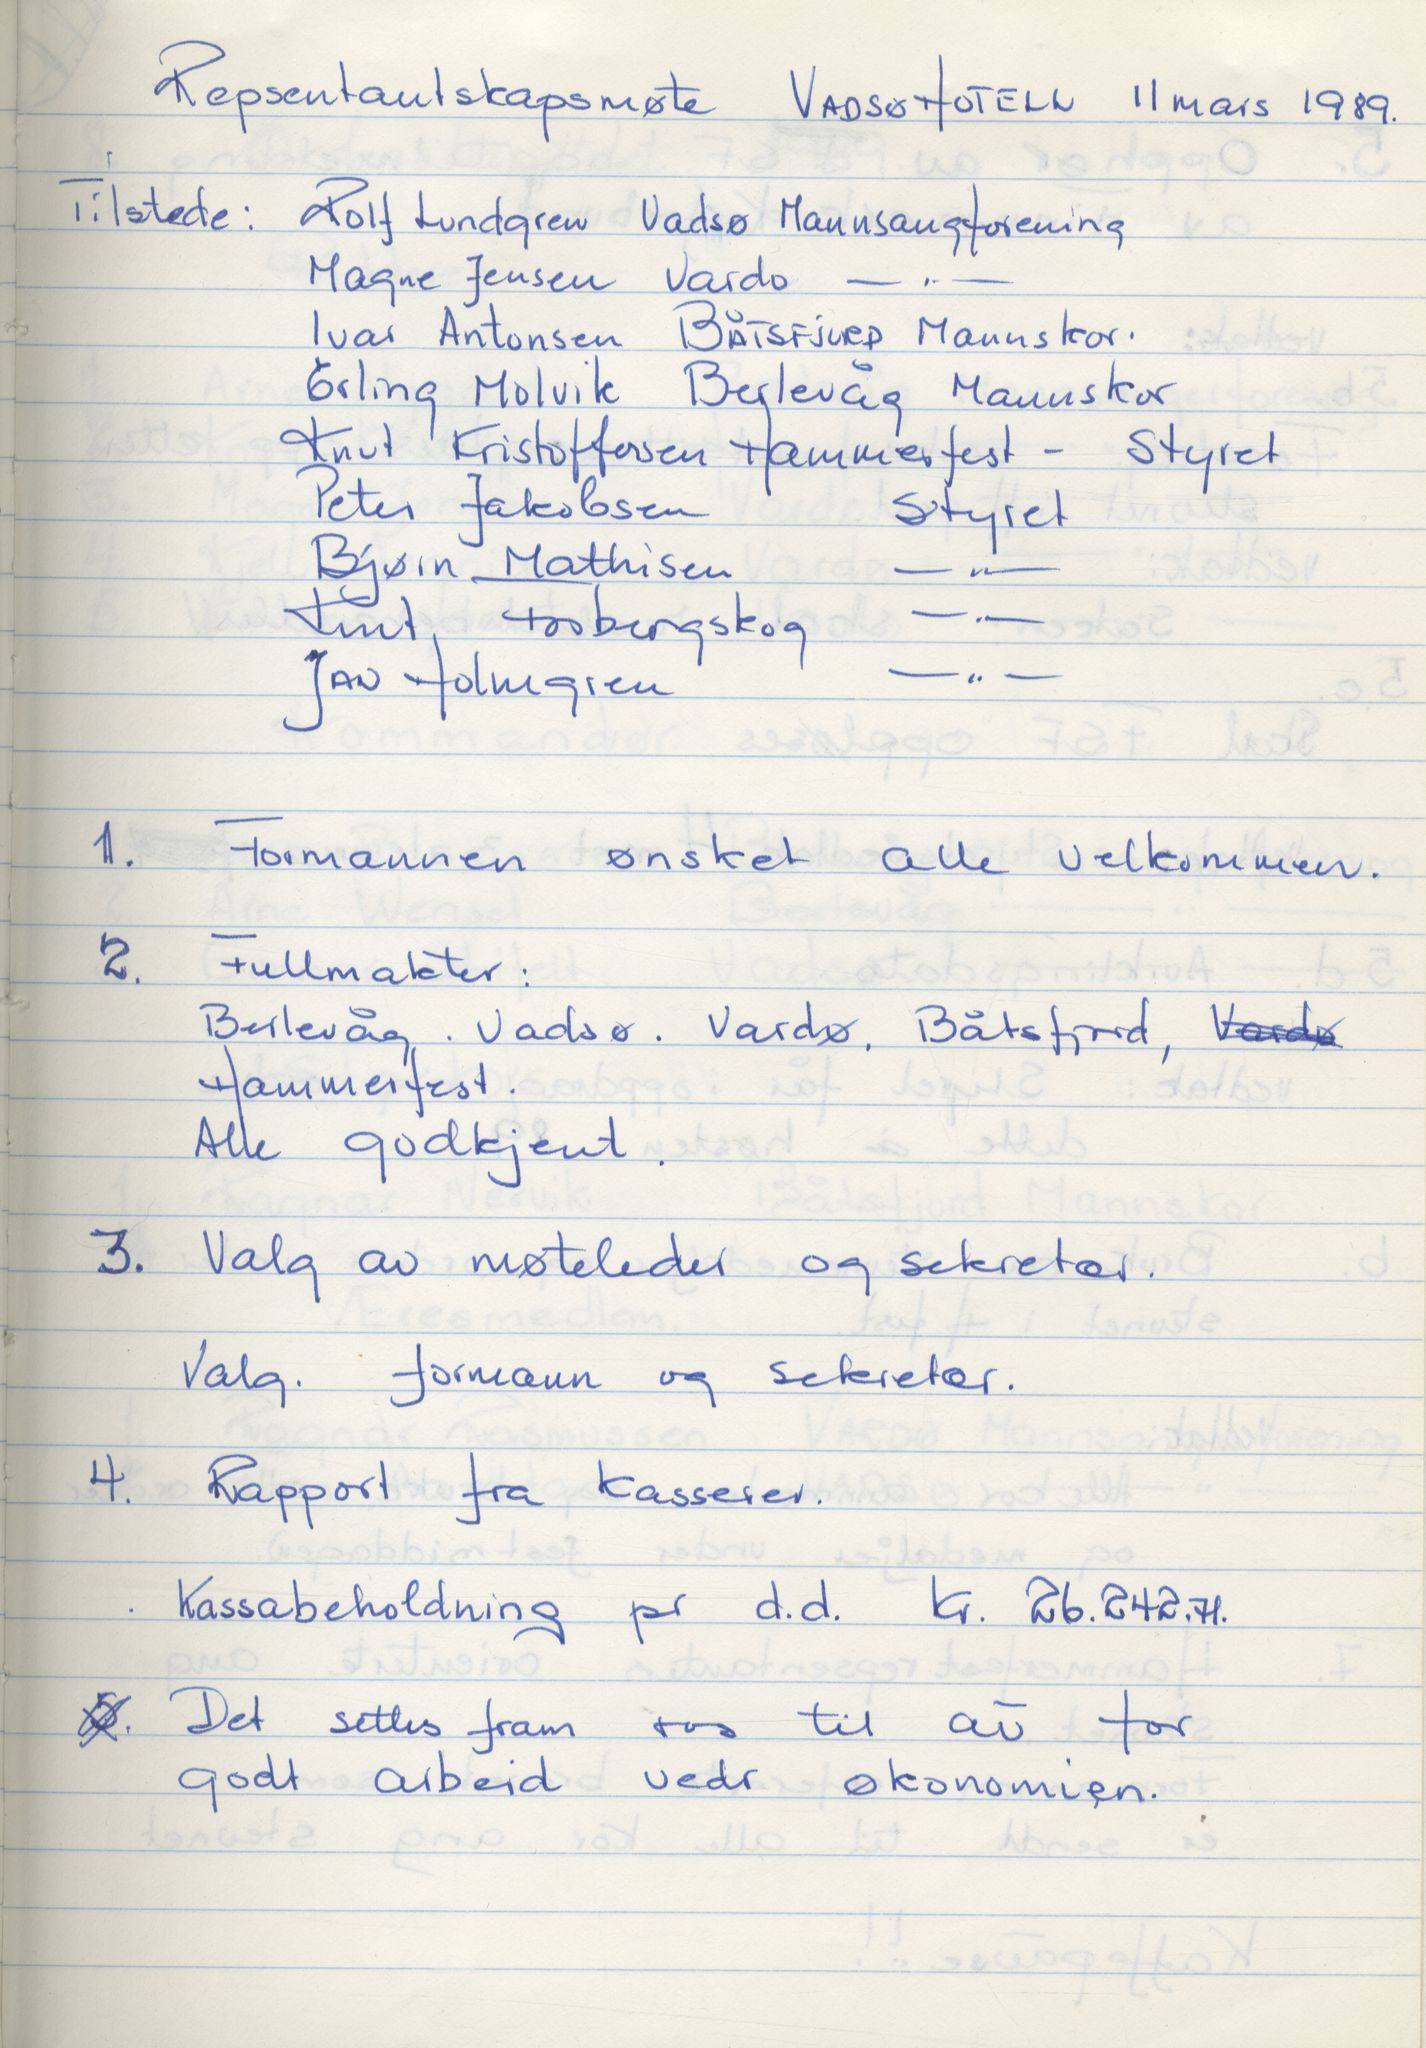 Repsentantskapsmøte VADSØ HOTELL 11 mars 1989.
Tilstede: Rolf Lundgren Vadsø Mannsangforening
Magne Jensen Vardø — " —
Ivar Antonsen BÅTSFJORD Mannskor.
Erling Molvik Berlevåg Mannskor
Knut Kristoffersen Hammerfest - Styret
Peter Jakobsen Styret
Bjørn Mathisen — " —
Knut — " —
JAN Holmgren — " —
1. Formannen ønsket alle velkommen.
2. Fullmakter:
Berlevåg. Vadsø. Vardø, Båtsfjord, Vardø
Hammerfest.
Alle godkjent.
3. Valg av møteleder og sekretær.
Valg. formann og sekretær.
4. Rapport fra kasserer.
Kassabeholdning pr d.d. kr. 26.242.71.
5. Det settes fram ros til for
godt arbeid vedr økonomien.